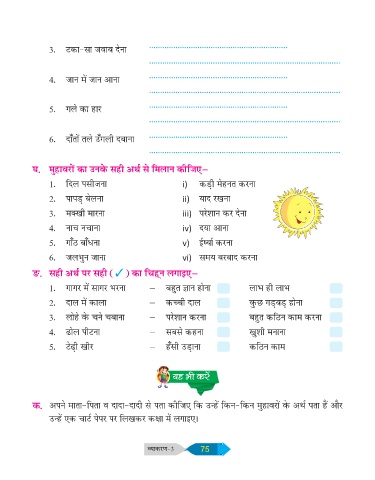 3. टका-सा जवाब देना
4. जान में जान आना
5. गले का हार
6. दाँतों तले उँगली दबाना
घ. मुहावरों का उनके सही अर्थ से मिलान कीजिए–
1. दिल पसीजना i) कड़ी मेहनत करना
2. पापड़ बेलना ii) याद रखना
3. मक्खी मारना iii) परेशान कर देना
4. नाच नचाना iv) दया आना
5. गाँठ बाँधना v) ईर्ष्या करना
6. जलभुन जाना vi) समय बरबाद करना
ङ. सही अर्थ पर सही ( ✓ ) का चिह्न लगाइए–
1. गागर में सागर भरना – बहुत ज्ञान होना लाभ ही लाभ
2. दाल में काला – कच्ची दाल कुछ गड़बड़ होना
3. लोहे के चने चबाना – परेशान करना बहुत कठिन काम करना
4. ढोल पीटना – सबसे कहना खुशी मनाना
5. टेढ़ी खीर – हँसी उड़ाना कठिन काम
यह भी करें
क. अपने माता-पिता व दादा-दादी से पता कीजिए कि उन्हें किन-किन मुहावरों के अर्थ पता हैं और
उन्हें एक चार्ट पेपर पर लिखकर कक्षा में लगाइए।
व्याकरण-3 75